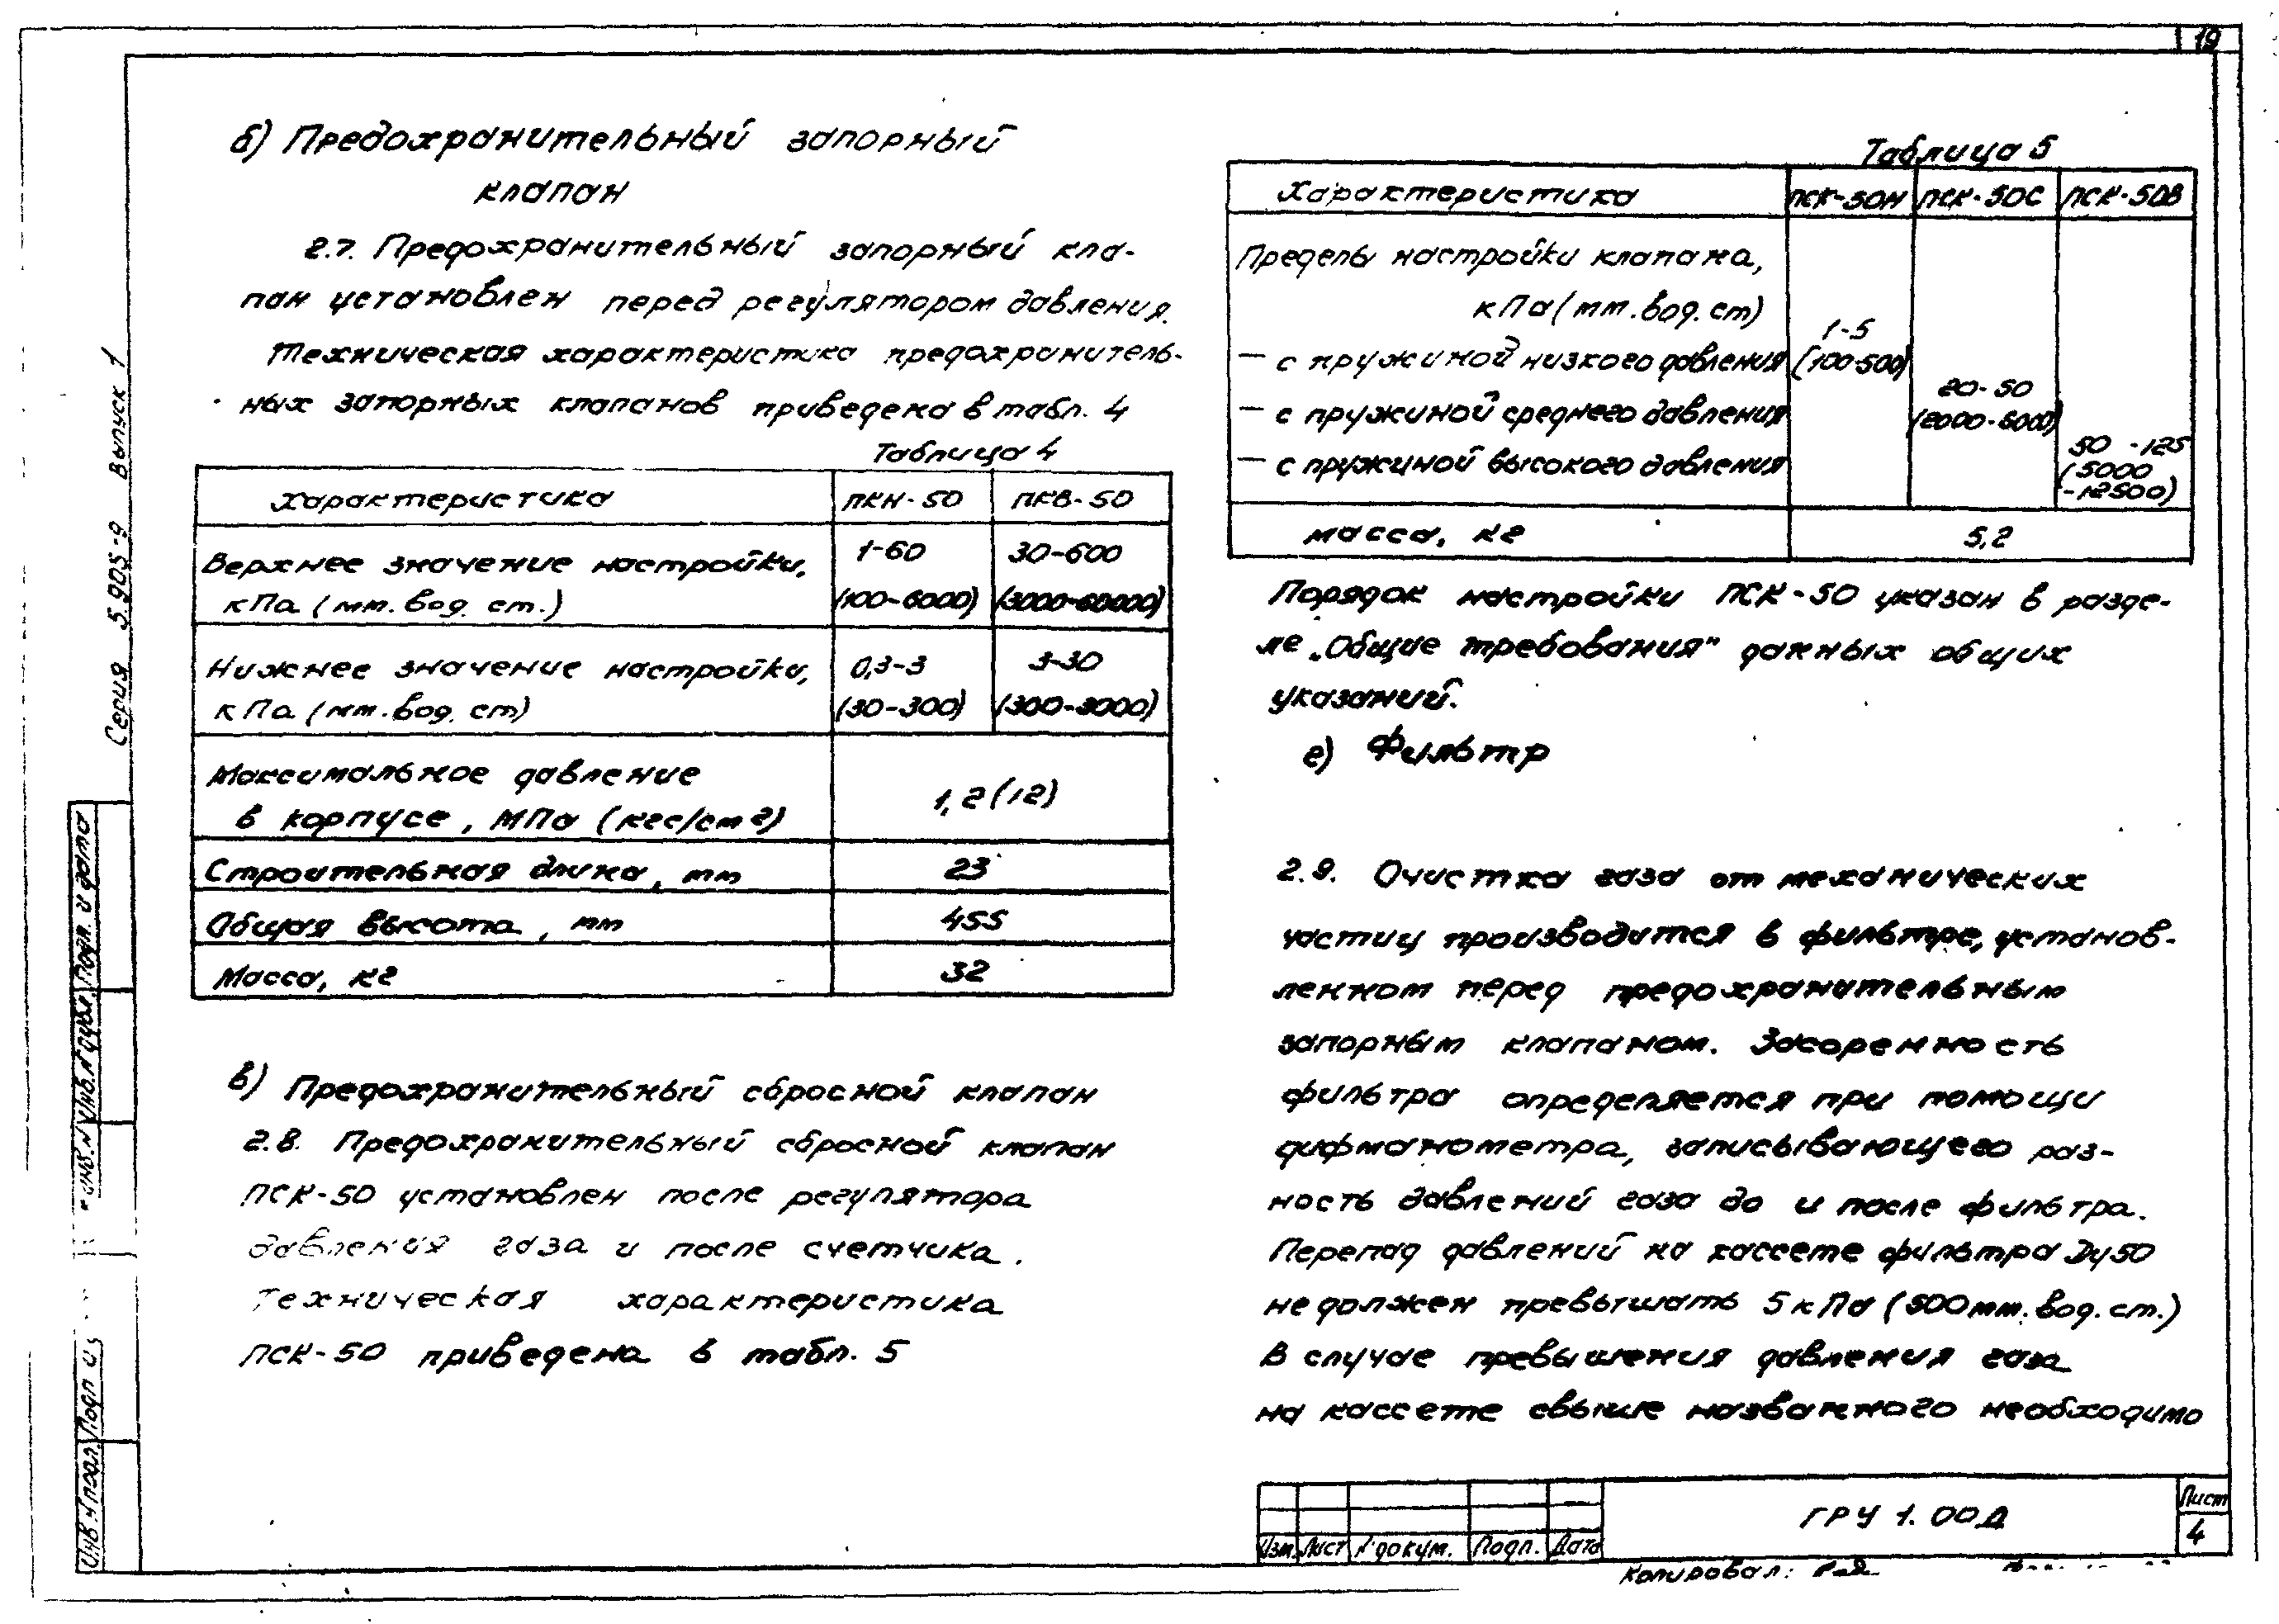 19
Серия 5.905-9 Выпуск 1
б) Предохранительный запорный
клапан
2.7. Предохранительный запорный кла-
пан установлен перед регулятором давления.
Техническая характеристика предохранитель-
ных запорных клапанов приведена в табл. 4
Таблица 4
Характеристика ПКН-50 ПКВ-50
Верхнее значение настройки, 1-60 30-600
кПа (мм. вод. ст.) (100-6000) (3000-60000)
Нижнее значение настройки, 0,3-3 3-30
кПа (мм. вод. ст) (30-300) (300-3000)
Максимальное давление
в корпусе, МПа (кгс/см2) 1,2 (12)
Строительная длина, мм 23
Общая высота, мм 455
Масса, кг 32
в) Предохранительный сбросной клапан
2.8. Предохранительный сбросной клапан
ПСК-50 установлен после регулятора
давления газа и после счетчика.
Техническая характеристика
ПСК-50 приведена в табл. 5
Таблица 5
Характеристика ПСК-50Н ПСК-50С ПСК-50В
Пределы настройки клапана,
кПа (мм. вод. ст)
— с пружиной низкого давления 1-5 (100-500)
— с пружиной среднего давления 20-50 (2000-6000)
— с пружиной высокого давления 50-125 (5000-12500)
масса, кг 5,2
Порядок настройки ПСК-50 указан в разде-
ле „Общие требования" данных общих
указаний.
е) Фильтр
2.9. Очистка газа от механических
частиц производится в фильтре, установ-
ленном перед предохранительным
запорным клапаном. Засоренность
фильтра определяется при помощи
дифманометра, записывающего раз-
ность давлений газа до и после фильтра.
Перепад давлений на кассете фильтра Ду50
не должен превышать 5 кПа (500 мм. вод. ст.)
В случае превышения давления газа
на кассете свыше названного необходимо
Изм. Лист N докум. Подп. Дата
ГРУ 1.00Д
Лист
4
Копировал:
Инв. N подл. Подп и
инв. N Инв. N дубл. Подп. и дата